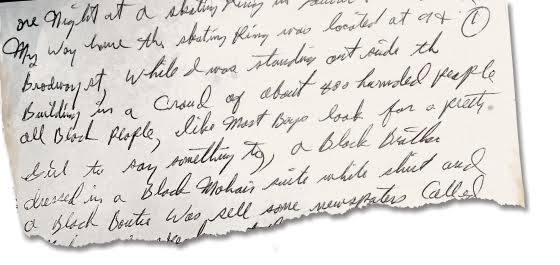 one Night at a skating Ring in
My way home the skating Ring was located at 94 ①
Brodway st, While I was standing out side th
Building in a Croud of about 400 hunrded people
all Black People, like Most Boys look for a pretty
Girl to say something to, a Black Brother
dressed in a Black Mohair suite white shirt and
a Black Boutie Was sell some newspaters Called